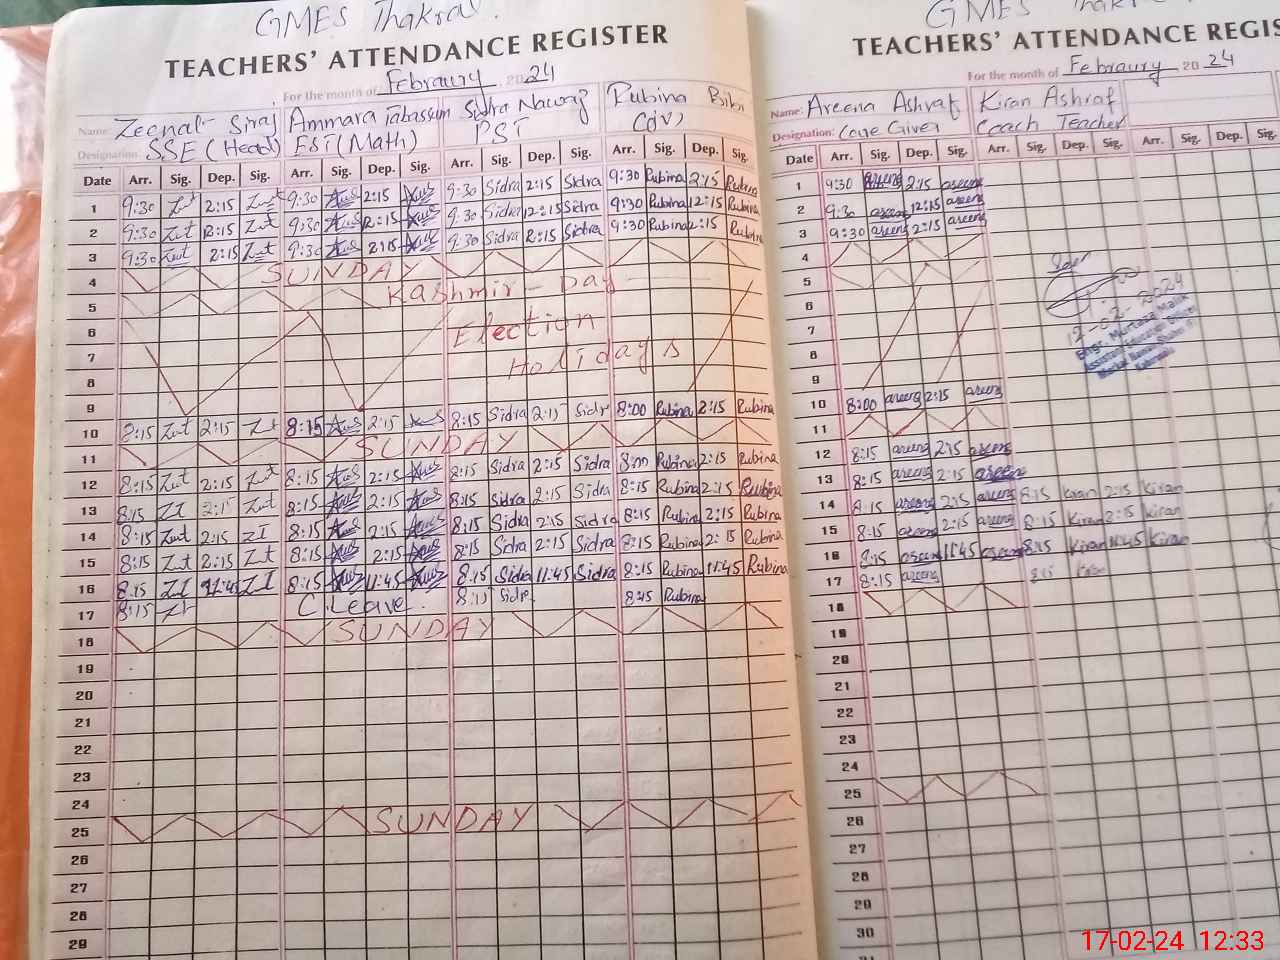 GMES Thakra
TEACHERS' ATTENDANCE REGISTER
For the month of Febraury 2024
Name: Zeenat Siraj Ammara Tabassum Sidra Nawaz Rubina Bibi
Designation: SSE (Head) EST (Math) PST (JV)
Date Arr. Sig. Dep. Sig. Arr. Sig. Dep. Sig. Arr. Sig. Dep. Sig. Arr. Sig. Dep. Sig.
1 9:30 Zut 2:15 Zut 9:30 2:15 9:30 Sidra 2:15 Sidra 9:30 Rubina 2:15 Rubina
2 9:30 Zut 12:15 Zut 9:30 12:15 9:30 Sidra 12:15 Sidra 9:30 Rubina 12:15 Rubina
3 9:30 Zut 2:15 Zut 9:30 2:15 9:30 Sidra 2:15 Sidra 9:30 Rubina 2:15 Rubina
4 SUNDAY
5 Kashmir - Day
6 Election
7 Holidays
8
9
10 8:15 Zut 2:15 Zut 8:15 2:15 8:15 Sidra 2:15 Sidr 8:00 Rubina 2:15 Rubina
11 SUNDAY
12 8:15 Zut 2:15 Zut 8:15 2:15 8:15 Sidra 2:15 Sidra 8:00 Rubina 2:15 Rubina
13 8:15 ZI 2:15 Zut 8:15 2:15 8:15 Sidra 2:15 Sidra 8:15 Rubina 2:15 Rubina
14 8:15 Zut 2:15 ZI 8:15 2:15 8:15 Sidra 2:15 Sidra 8:15 Rubina 2:15 Rubina
15 8:15 Zut 2:15 Zut 8:15 2:15 8:15 Sidra 2:15 Sidra 8:15 Rubina 2:15 Rubina
16 8:15 ZI 11:45 ZI 8:15 11:45 8:15 Sidra 11:45 Sidra 8:15 Rubina 11:45 Rubina
17 8:15 ZI C Leave. 8:15 Sidra 8:15 Rubina
18 SUNDAY
19
20
21
22
23
24
25 SUNDAY
26
27
28
29
GMES Thakra
TEACHERS' ATTENDANCE REGIS
For the month of Febraury 2024
Name: Areena Ashraf Kiran Ashraf
Designation: Care Giver Coach Teacher
Date Arr. Sig. Dep. Sig. Arr. Sig. Dep. Sig. Arr. Sig. Dep.
1 9:30 areena 2:15 areena
2 9:30 areena 12:15 areena
3 9:30 areena 2:15 areena
4
5
6
7
8
9
10 8:00 areena 2:15 areena
11
12 8:15 areena 2:15 areena
13 8:15 areena 2:15 areena
14 8:15 areena 2:15 areena 8:15 Kiran 2:15 Kiran
15 8:15 areena 2:15 areena 8:15 Kiran 2:15 Kiran
16 8:15 areena 11:45 areena 8:15 Kiran 11:45 Kiran
17 8:15 areena 8:15 Kiran
18
19
20
21
22
23
24
25
26
27
28
29
30
12-02-2024
Engr. Murtaza Malik
17-02-24 12:33